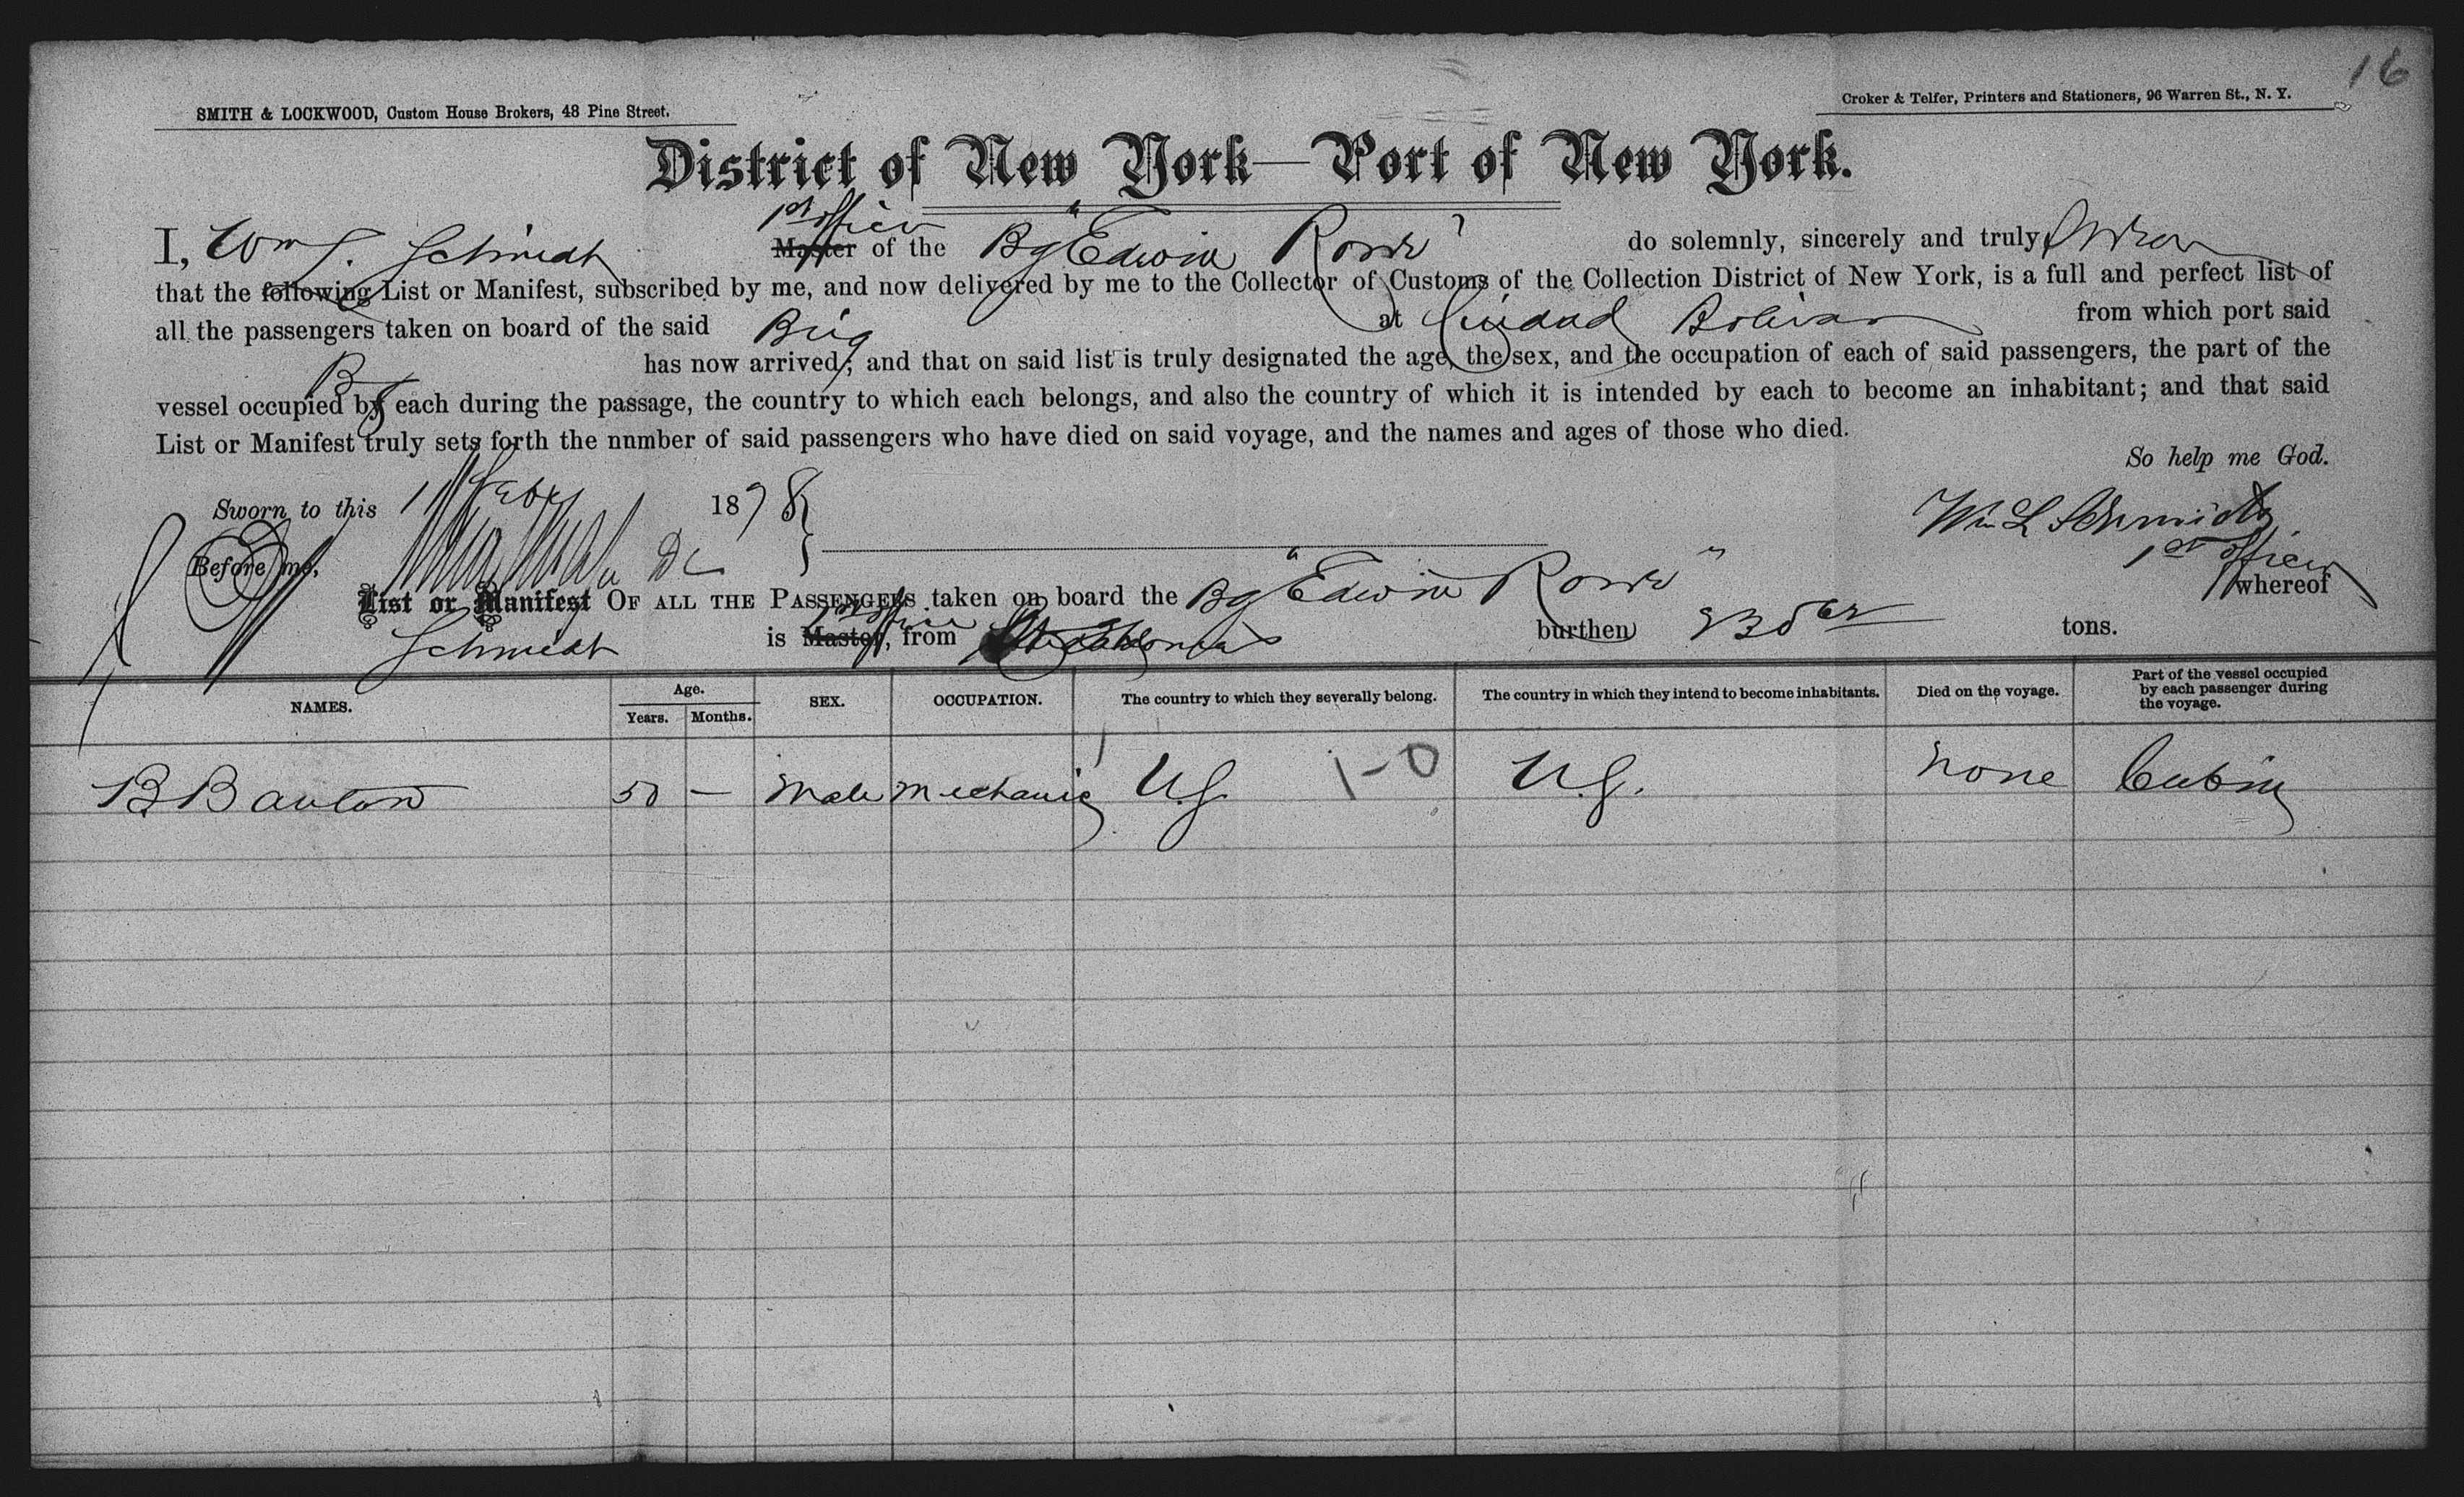 16
SMITH & LOCKWOOD, Custom House Brokers, 48 Pine Street.
Croker & Telfer, Printers and Stationers, 96 Warren St., N. Y.
District of New York—Port of New York.
1st officer
I, Wm L. Schmidt Master of the Bg "Edwin Rowe" do solemnly, sincerely and truly swear
that the following List or Manifest, subscribed by me, and now delivered by me to the Collector of Customs of the Collection District of New York, is a full and perfect list of
all the passengers taken on board of the said Brig at Ciudad Bolivar from which port said
Bg has now arrived; and that on said list is truly designated the age, the sex, and the occupation of each of said passengers, the part of the
vessel occupied by each during the passage, the country to which each belongs, and also the country of which it is intended by each to become an inhabitant; and that said
List or Manifest truly sets forth the nnmber of said passengers who have died on said voyage, and the names and ages of those who died.
So help me God.
Sworn to this 11 Feby 1878
Wm L Schmidt
1st officer
Before me,
List or Manifest OF ALL THE PASSENGERS taken on board the Bg "Edwin Rowe" whereof
1st officer
Schmidt is Master, from burthen tons.
NAMES.
Age.
Years. Months.
SEX.
OCCUPATION.
The country to which they severally belong.
The country in which they intend to become inhabitants.
Died on the voyage.
Part of the vessel occupied
by each passenger during
the voyage.
B Bauton 50 — Male Mechanic U.S. 1-0 U.S. None Cabin